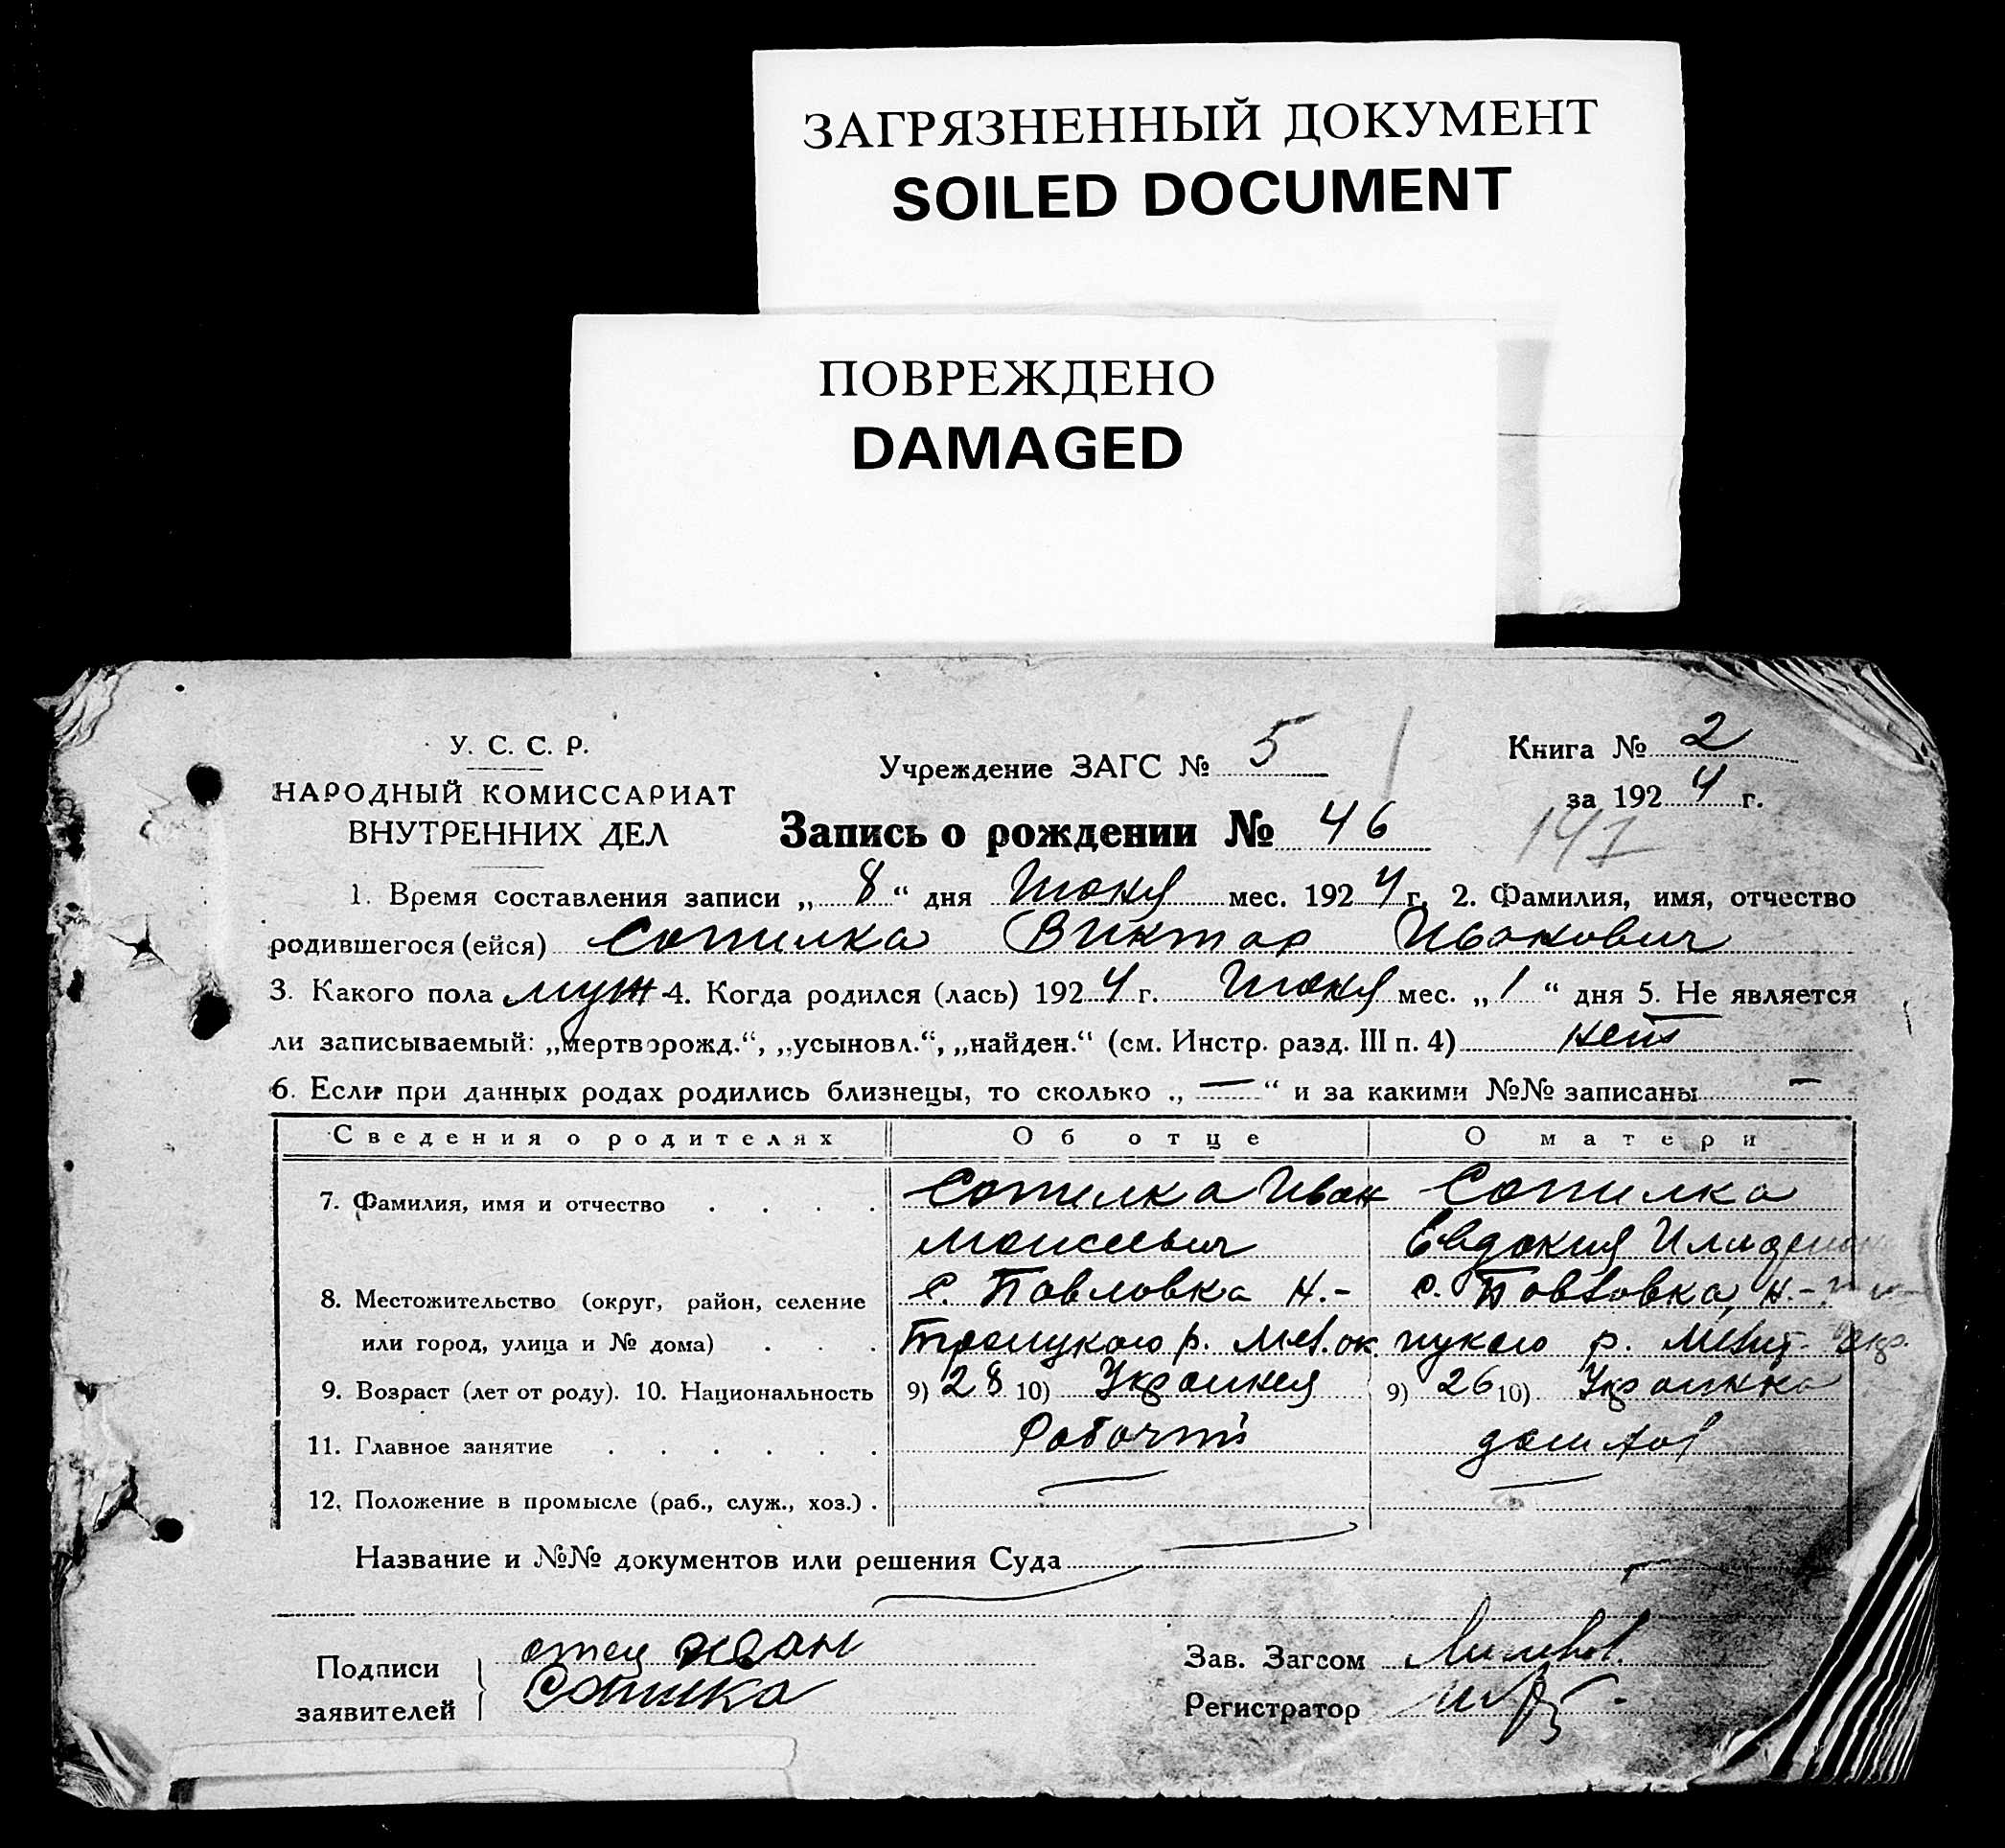 ЗАГРЯЗНЕННЫЙ ДОКУМЕНТ
SOILED DOCUMENT
ПОВРЕЖДЕНО
DAMAGED
У. С. С. Р.
НАРОДНЫЙ КОМИССАРИАТ
ВНУТРЕННИХ ДЕЛ
Учреждение ЗАГС № 5
Книга № 2
за 1924 г.
Запись о рождении № 46
1. Время составления записи „8“ дня Июня мес. 1924 г. 2. Фамилия, имя, отчество
родившегося (ейся) Сопилка Виктор Иванович
3. Какого пола муж 4. Когда родился (лась) 1924 г. Июня мес. „1“ дня 5. Не является
ли записываемый: „мертворожд.“, „усыновл.“, „найден.“ (см. Инстр. разд. III п. 4) нет
6. Если при данных родах родились близнецы, то сколько „—“ и за какими №№ записаны —
Сведения о родителях Об отце О матери
7. Фамилия, имя и отчество Сопилка Иван Сопилка
Моисеевич Евдокия
8. Местожительство (округ, район, селение с. Павловка Н.- с. Павловка, Н.-
или город, улица и № дома) Троицкого р. Мел. ок. цкого р. Мелит. окр.
9. Возраст (лет от роду). 10. Национальность 9) 28 10) Украинец 9) 26 10) Украинка
11. Главное занятие Рабочий домхоз
12. Положение в промысле (раб., служ., хоз.) — —
Название и №№ документов или решения Суда
Подписи заявителей отец Иван
Сопилка
Зав. Загсом
Регистратор